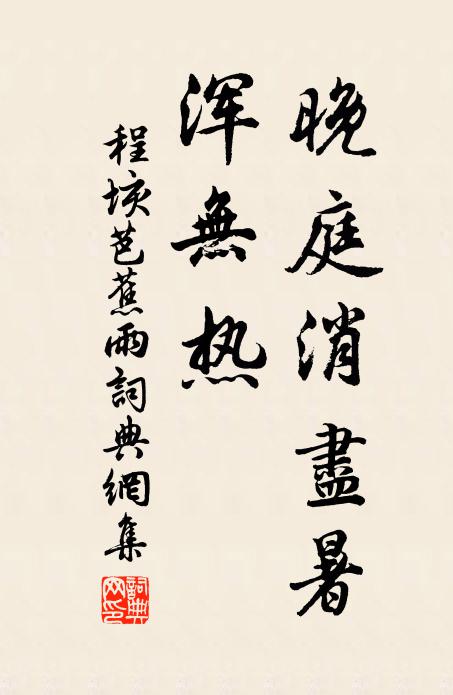 晚庭消盡暑
浑無热
程垓芭蕉雨詞典網集
詞典网印